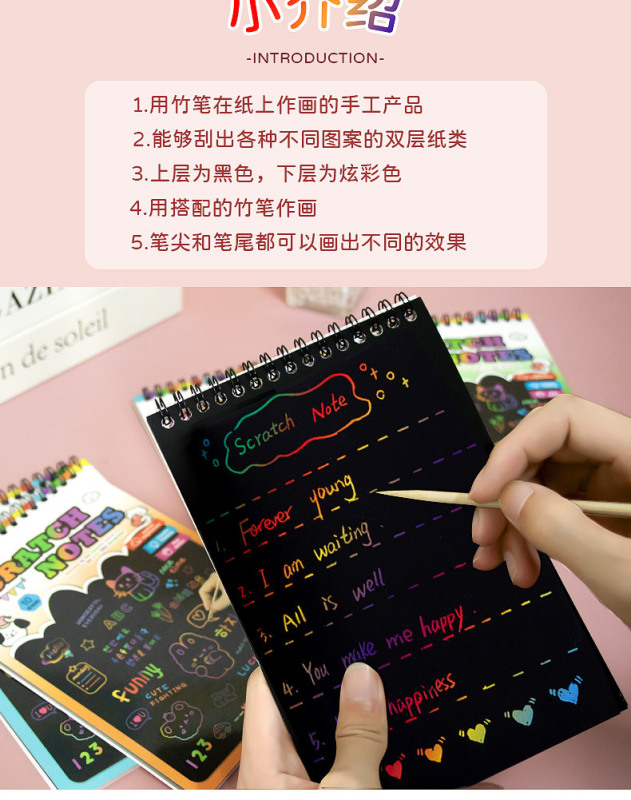 小介绍
-INTRODUCTION-
1.用竹笔在纸上作画的手工产品
2.能够刮出各种不同图案的双层纸类
3.上层为黑色，下层为炫彩色
4.用搭配的竹笔作画
5.笔尖和笔尾都可以画出不同的效果
n de soleil
NOTES
Scratch Note
1. Forever young
2. I am waiting
3. All is well
4. You make me happy.
5. happiness
RATCH
NOTES
ABC
funny
CUTE
FIGHTING
123
123